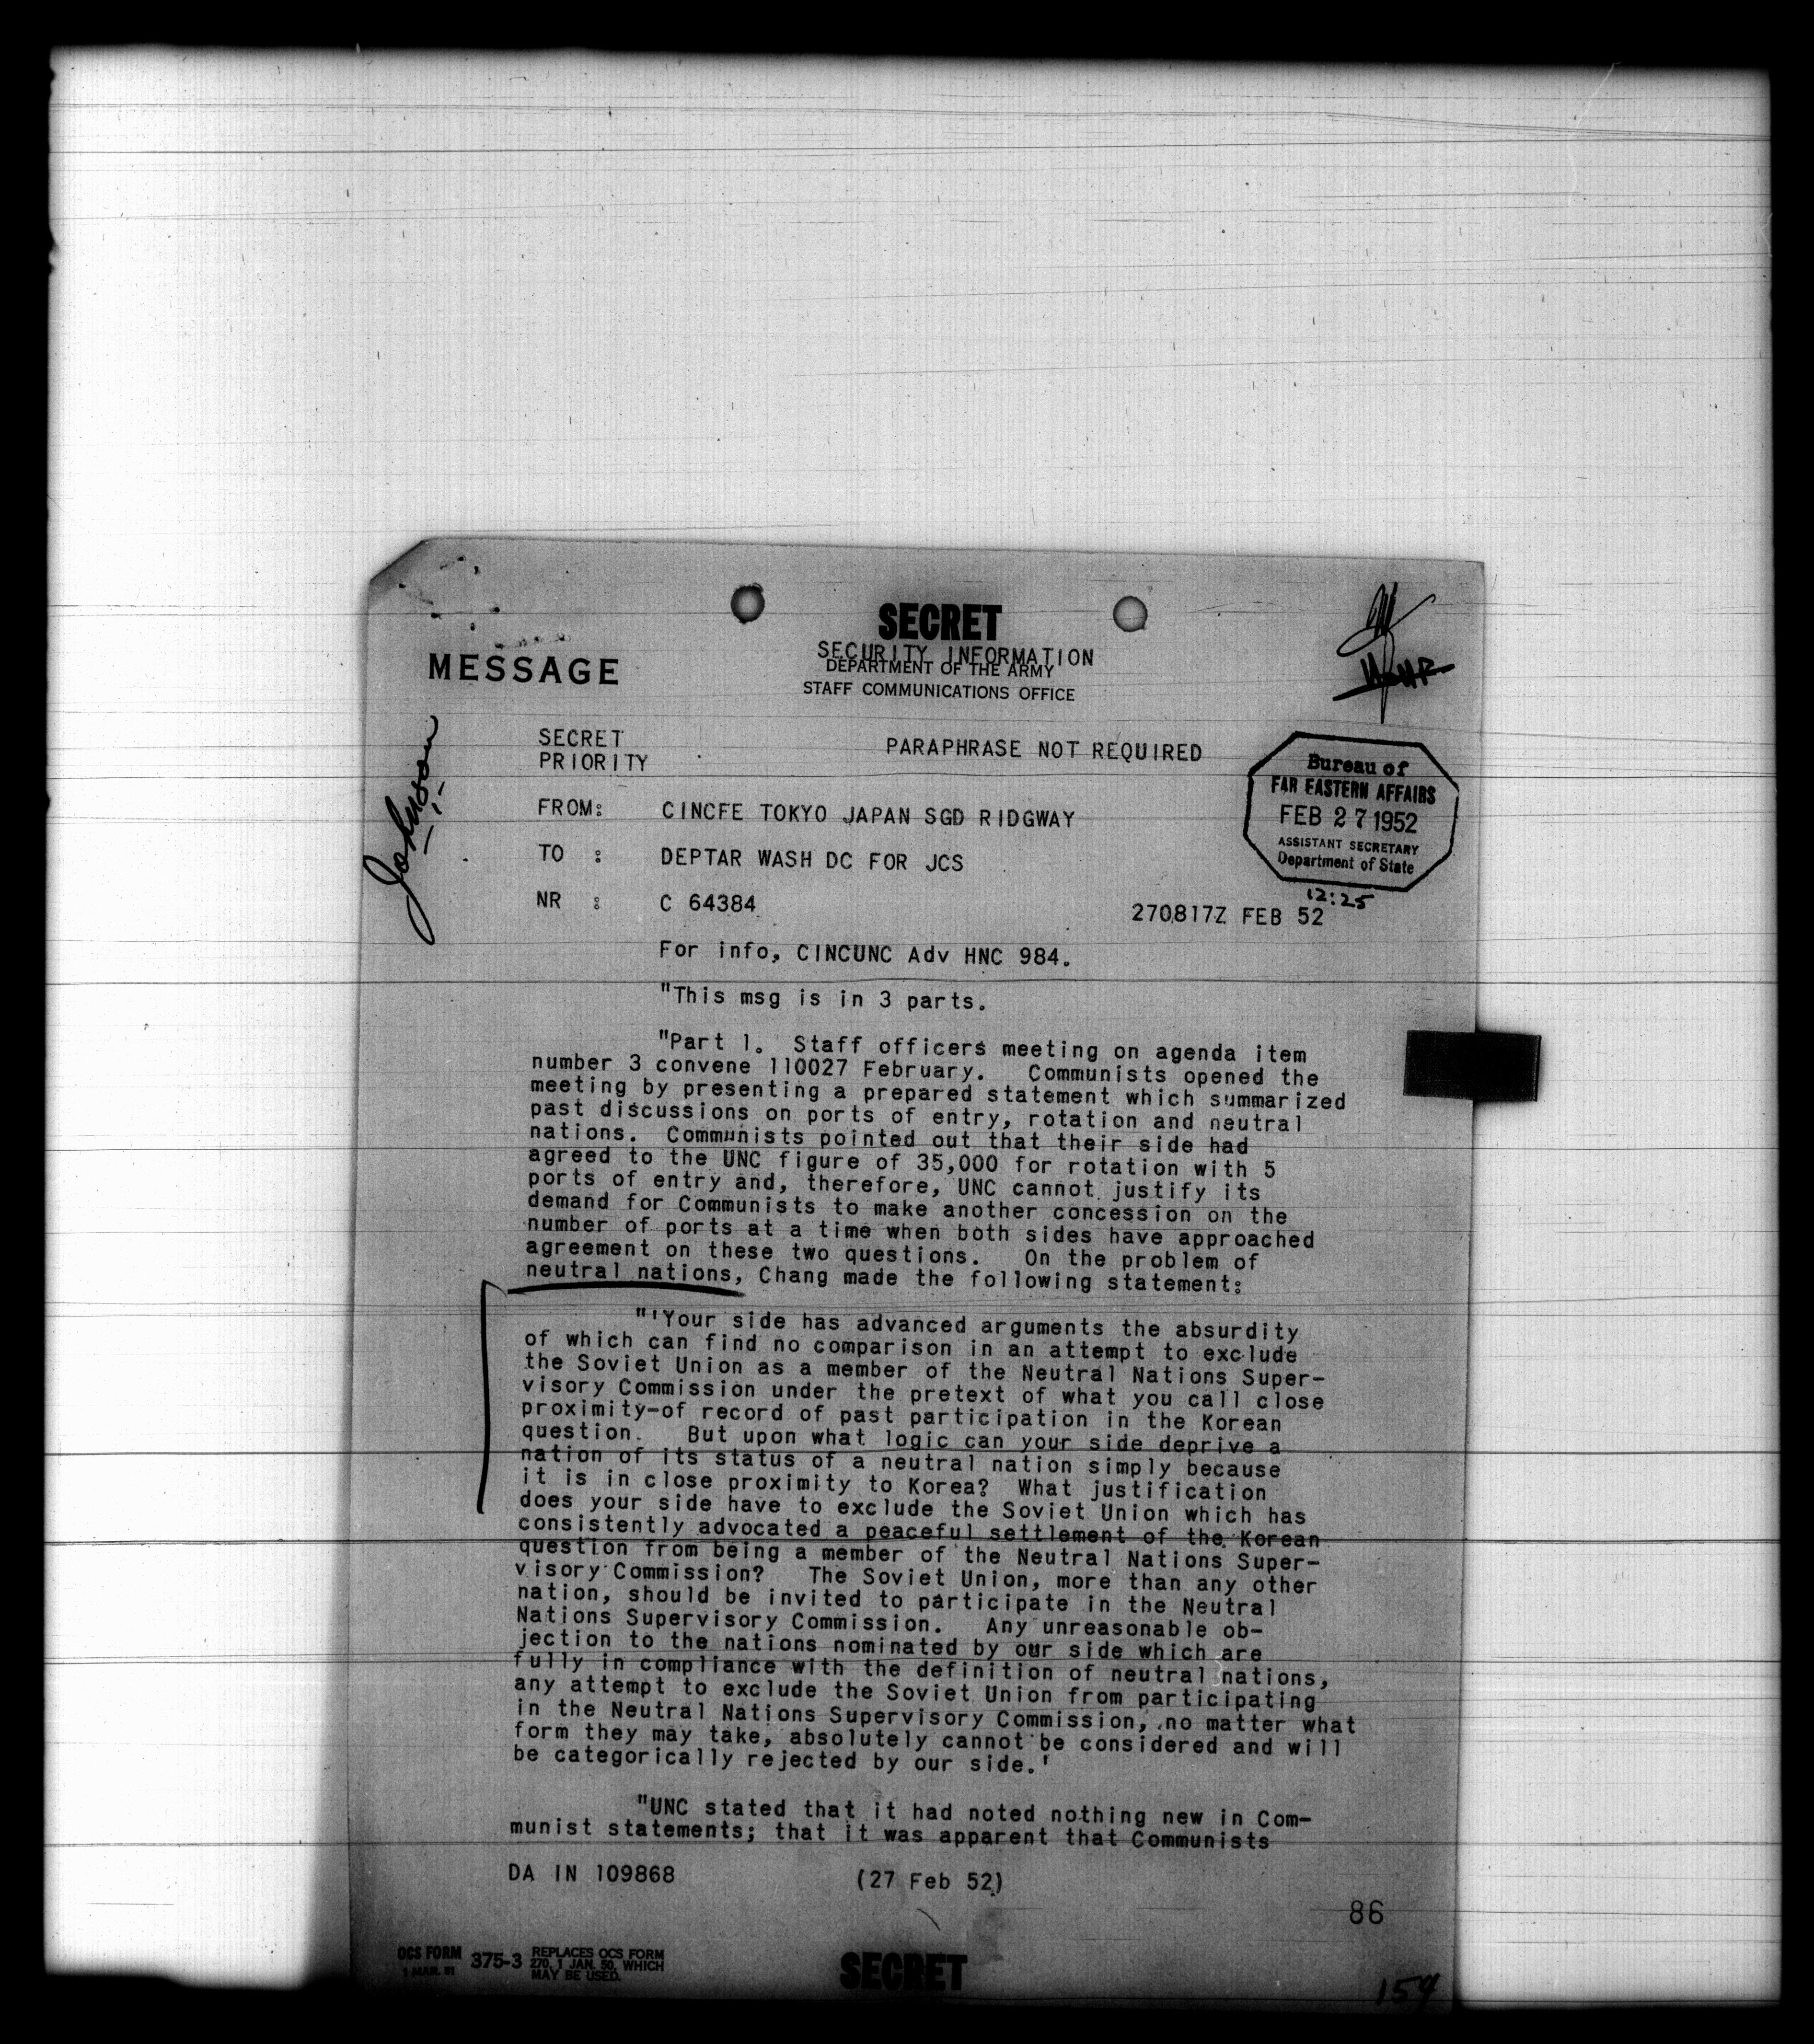 SECRET
SECURITY INFORMATION
MESSAGE
DEPARTMENT OF THE ARMY
STAFF COMMUNICATIONS OFFICE
Johnson
SECRET
PRIORITY
PARAPHRASE NOT REQUIRED
Bureau of
FAR EASTERN AFFAIRS
FEB 27 1952
ASSISTANT SECRETARY
Department of State
12:25
FROM: CINCFE TOKYO JAPAN SGD RIDGWAY
TO : DEPTAR WASH DC FOR JCS
NR : C 64384
270817Z FEB 52
For info, CINCUNC Adv HNC 984.
"This msg is in 3 parts.
"Part 1. Staff officers meeting on agenda item
number 3 convene 110027 February. Communists opened the
meeting by presenting a prepared statement which summarized
past discussions on ports of entry, rotation and neutral
nations. Communists pointed out that their side had
agreed to the UNC figure of 35,000 for rotation with 5
ports of entry and, therefore, UNC cannot justify its
demand for Communists to make another concession on the
number of ports at a time when both sides have approached
agreement on these two questions. On the problem of
neutral nations, Chang made the following statement:
"'Your side has advanced arguments the absurdity
of which can find no comparison in an attempt to exclude
the Soviet Union as a member of the Neutral Nations Super-
visory Commission under the pretext of what you call close
proximity-of record of past participation in the Korean
question. But upon what logic can your side deprive a
nation of its status of a neutral nation simply because
it is in close proximity to Korea? What justification
does your side have to exclude the Soviet Union which has
consistently advocated a peaceful settlement of the Korean
question from being a member of the Neutral Nations Super-
visory Commission? The Soviet Union, more than any other
nation, should be invited to participate in the Neutral
Nations Supervisory Commission. Any unreasonable ob-
jection to the nations nominated by our side which are
fully in compliance with the definition of neutral nations,
any attempt to exclude the Soviet Union from participating
in the Neutral Nations Supervisory Commission, no matter what
form they may take, absolutely cannot be considered and will
be categorically rejected by our side.'
"UNC stated that it had noted nothing new in Com-
munist statements; that it was apparent that Communists
DA IN 109868 (27 Feb 52)
86
OCS FORM 375-3 REPLACES OCS FORM
1 MAR. 51 270, 1 JAN. 50, WHICH
MAY BE USED.
SECRET
159